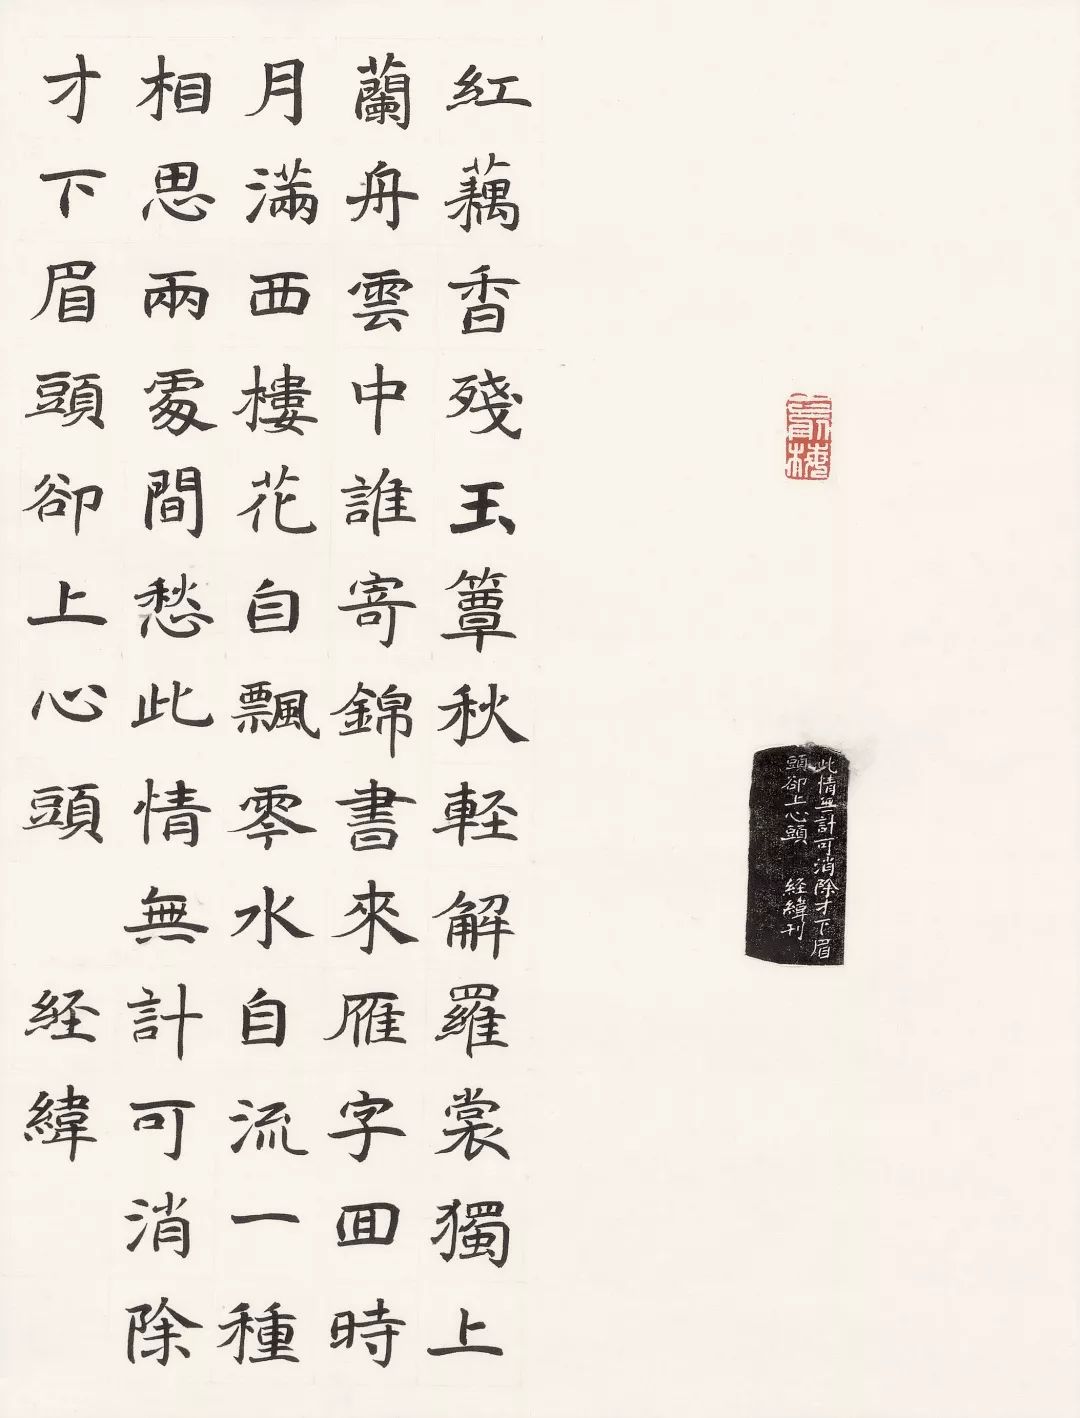 此情無計可消除才下眉
頭卻上心頭 経緯刊
紅藕香殘玉簟秋軽解羅裳獨上
蘭舟雲中誰寄錦書來雁字囬時
月滿西樓花自飄零水自流一種
相思兩處間愁此情無計可消除
才下眉頭卻上心頭 経緯